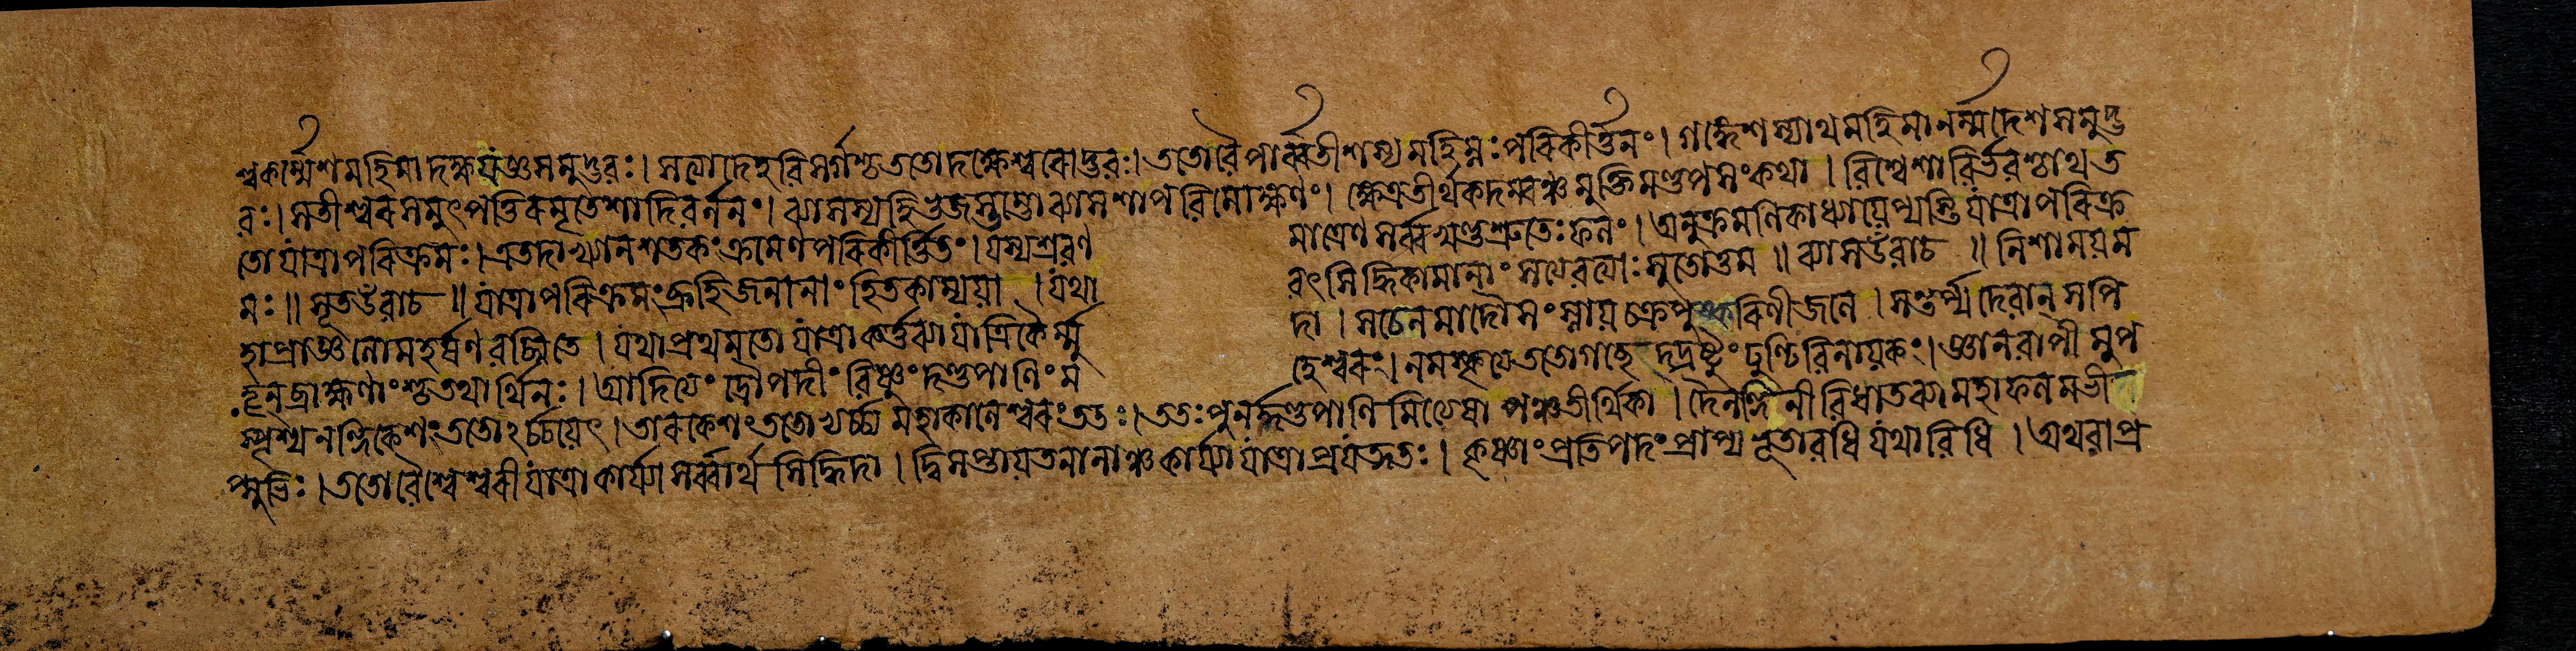 শ্বকর্ম্মেশমহিমা দক্ষযজ্ঞসমুদ্ভবঃ। সত্যাদেহবিসর্গশ্চ ততো দক্ষেশ্বরোদ্ভবঃ। ততো বৈ পার্ব্বতীশস্য মহিম্নঃ পরিকীর্ত্তনং। গঙ্গেশস্যাথ মহিমা নর্ম্মদেশসমুদ্ভ
বঃ। সতীশ্বরসমুৎপত্তিরমৃতেশাদিবর্ণনং। ব্যাসস্য হি ভুজস্তম্ভো ব্যাসশাপবিমোক্ষণং। ক্ষেত্রতীর্থকদম্বঞ্চ মুক্তিমণ্ডপসংকথা। বিশ্বেশাবির্ভবশ্চাথ ত
তো যাত্রাপরিক্রমঃ। এতদাখ্যানশতকং ক্রমেণ পরিকীর্ত্তিতং। যস্য শ্রবণমাত্রেণ সর্ব্বখণ্ডশ্রুতেঃ ফলং। অনুক্রমণিকাধ্যায়েপ্যস্তি যাত্রাপরিক্র
মঃ॥ সূত উবাচ॥ যাত্রাপরিক্রমং ব্রূহি জনানাং হিতকাম্যয়া। যথাবৎ সিদ্ধিকামানাং সত্যবত্যাঃ সুতোত্তম॥ ব্যাস উবাচ॥ নিশাময় ম
হাপ্রাজ্ঞ লোমহর্ষণ বচ্মি তে। যথা প্রথমতো যাত্রা কর্ত্তব্যা যাত্রিকৈর্ম্মুদা। সচেলমাদৌ সংস্নায় চক্রপুষ্করিণীজলে। সন্তর্প্য দেবান্ সপি
তৄন্ ব্রাহ্মণাংশ্চ তথার্থিনঃ। আদিত্যং দ্রৌপদীং বিষ্ণুং দণ্ডপাণিং মহেশ্বরং। নমস্কৃত্য ততো গচ্ছেদ্দ্রষ্টুং ঢুণ্ঢিবিনায়কং। জ্ঞানবাপীমুপ
স্পৃশ্য নন্দিকেশং ততোঽর্চ্চয়েৎ। তারকেশং ততোভ্যর্চ্চ্য মহাকালেশ্বরং ততঃ। ততঃ পুনর্দ্দণ্ডপাণিমিত্যেষা পঞ্চতীর্থিকা। দৈনন্দিনী বিধাতব্যা মহাফলমভী
প্সুভিঃ। ততো বৈশ্বেশ্বরী যাত্রা কার্য্যা সর্ব্বার্থসিদ্ধিদা। দ্বিসপ্তায়তনানাঞ্চ কার্য্যা যাত্রা প্রযত্নতঃ। কৃষ্ণাং প্রতিপদং প্রাপ্য ভূতাবধি যথাবিধি। অথবা প্র